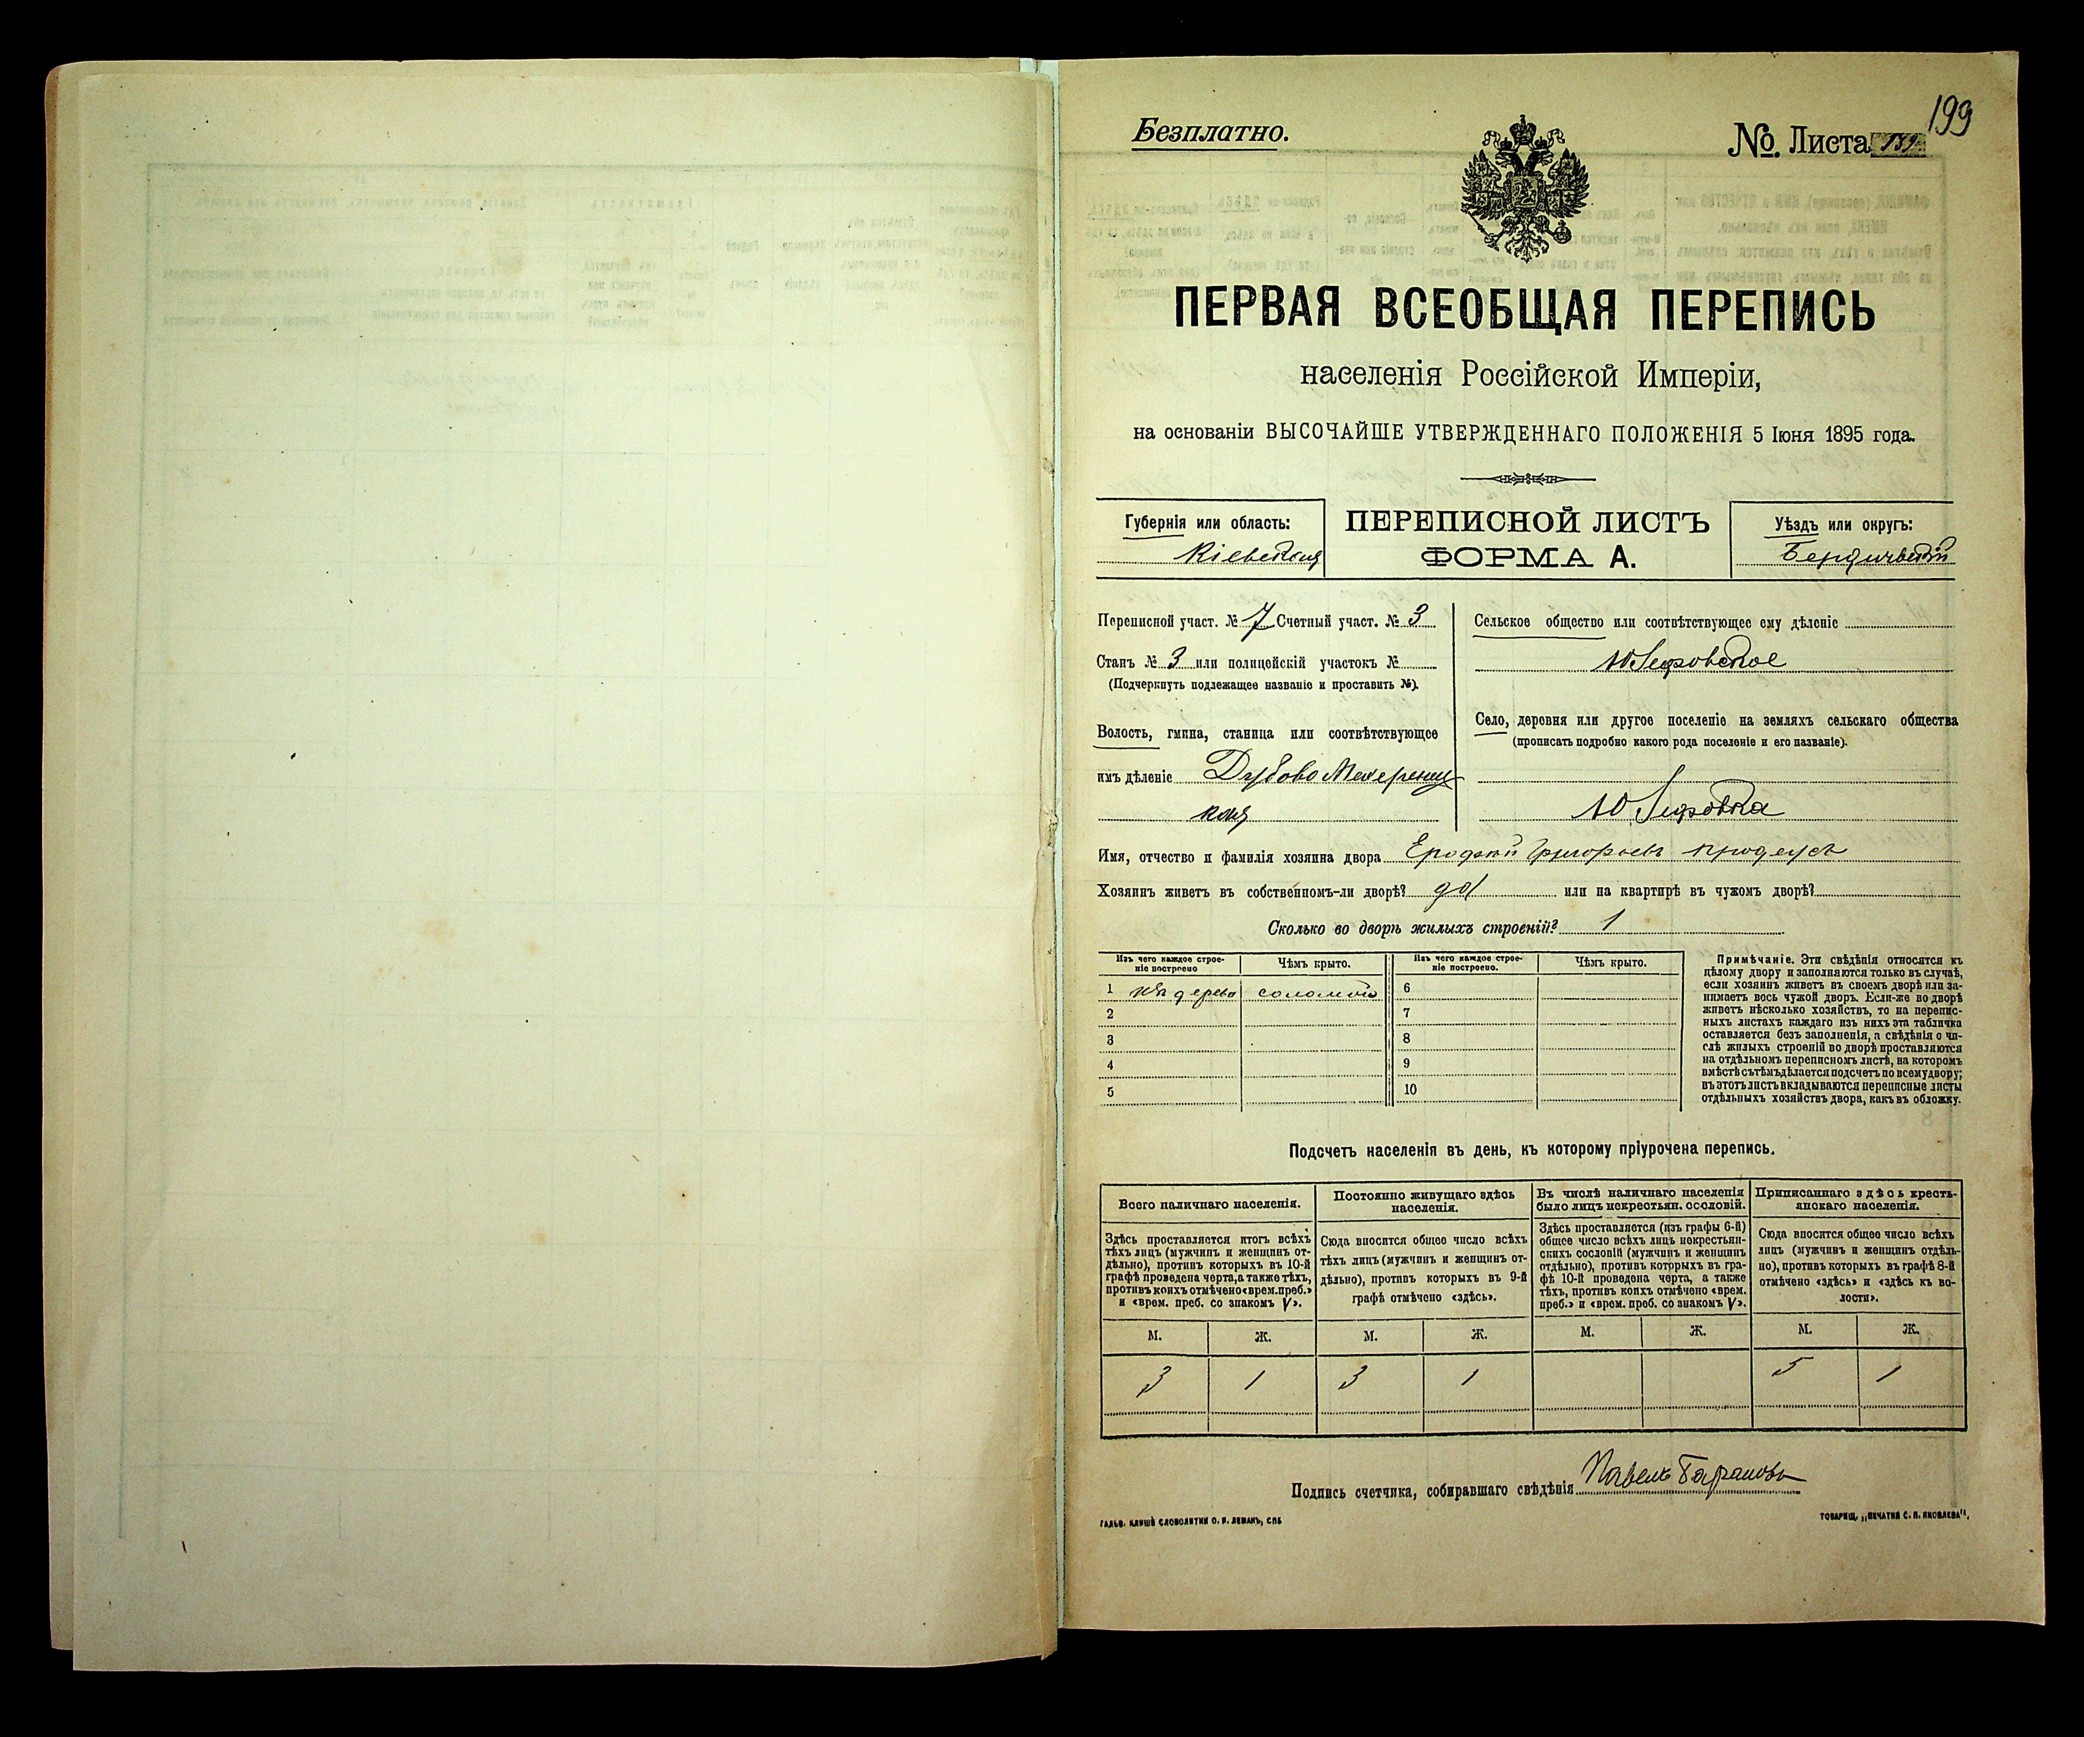 199
Безплатно.
№. Листа 139
ПЕРВАЯ ВСЕОБЩАЯ ПЕРЕПИСЬ
населенія Россійской Имперіи,
на основаніи ВЫСОЧАЙШЕ УТВЕРЖДЕННАГО ПОЛОЖЕНІЯ 5 Іюня 1895 года.
Губернія или область:
Кіевская
ПЕРЕПИСНОЙ ЛИСТЪ
ФОРМА А.
Уѣздъ или округъ:
Бердичевскій
Переписной участ. № 7 Счетный участ. № 3
Станъ № 3 или полицейскій участокъ №
(Подчеркнуть подлежащее названіе и проставить №).
Волость, гмина, станица или соотвѣтствующее
имъ дѣленіе Дубово Махаринец
кая
Сельское общество или соотвѣтствующее ему дѣленіе
Юзефовское
Село, деревня или другое поселеніе на земляхъ сельскаго общества
(прописать подробно какого рода поселеніе и его названіе).
Юзефовка
Имя, отчество и фамилія хозяина двора Григорьевъ
Хозяинъ живетъ въ собственномъ-ли дворѣ? да или на квартирѣ въ чужомъ дворѣ?
Сколько во дворѣ жилыхъ строеній? 1
Изъ чего каждое строе-
ніе построено
Чѣмъ крыто.
Изъ чего каждое строе-
ніе построено.
Чѣмъ крыто.
1 изъ дерева соломою 6
2 7
3 8
4 9
5 10
Примѣчаніе. Эти свѣдѣнія относятся къ
цѣлому двору и заполняются только въ случаѣ,
если хозяинъ живетъ въ своемъ дворѣ или за-
нимаетъ весь чужой дворъ. Если-же во дворѣ
живетъ нѣсколько хозяйствъ, то на перепис-
ныхъ листахъ каждаго изъ нихъ эта табличка
оставляется безъ заполненія, а свѣдѣнія о чи-
слѣ жилыхъ строеній во дворѣ проставляются
на отдѣльномъ переписномъ листѣ, на которомъ
вмѣстѣ съ тѣмъ дѣлается подсчетъ по всему двору;
въ этотъ листъ вкладываются переписные листы
отдѣльныхъ хозяйствъ двора, какъ въ обложку.
Подсчетъ населенія въ день, къ которому пріурочена перепись.
Всего наличнаго населенія.
Здѣсь проставляется итогъ всѣхъ
тѣхъ лицъ (мужчинъ и женщинъ от-
дѣльно), противъ которыхъ въ 10-й
графѣ проведена черта, а также тѣхъ,
противъ коихъ отмѣчено «врем. преб.»
и «врем. преб. со знакомъ V».
Постоянно живущаго здѣсь
населенія.
Сюда вносится общее число всѣхъ
тѣхъ лицъ (мужчинъ и женщинъ от-
дѣльно), противъ которыхъ въ 9-й
графѣ отмѣчено «здѣсь».
Въ числѣ наличнаго населенія
было лицъ некрестьян. сословій.
Здѣсь проставляется (изъ графы 6-й)
общее число всѣхъ лицъ некрестьян-
скихъ сословій (мужчинъ и женщинъ
отдѣльно), противъ которыхъ въ гра-
фѣ 10-й проведена черта, а также
тѣхъ, противъ коихъ отмѣчено «врем.
преб.» и «врем. преб. со знакомъ V».
Приписаннаго здѣсь кресть-
янскаго населенія.
Сюда вносится общее число всѣхъ
лицъ (мужчинъ и женщинъ отдѣль-
но), противъ которыхъ въ графѣ 8-й
отмѣчено «здѣсь» и «здѣсь къ во-
лости».
М. Ж. М. Ж. М. Ж. М. Ж.
3 1 3 1 5 1
Подпись счетчика, собиравшаго свѣдѣнія Павелъ Барановъ
ГАЛЬВ. КЛИШЕ СЛОВОЛИТНИ О. И. ЛЕМАНЪ, СПБ
ТОВАРИЩ. „ПЕЧАТНЯ С. П. ЯКОВЛЕВА“.